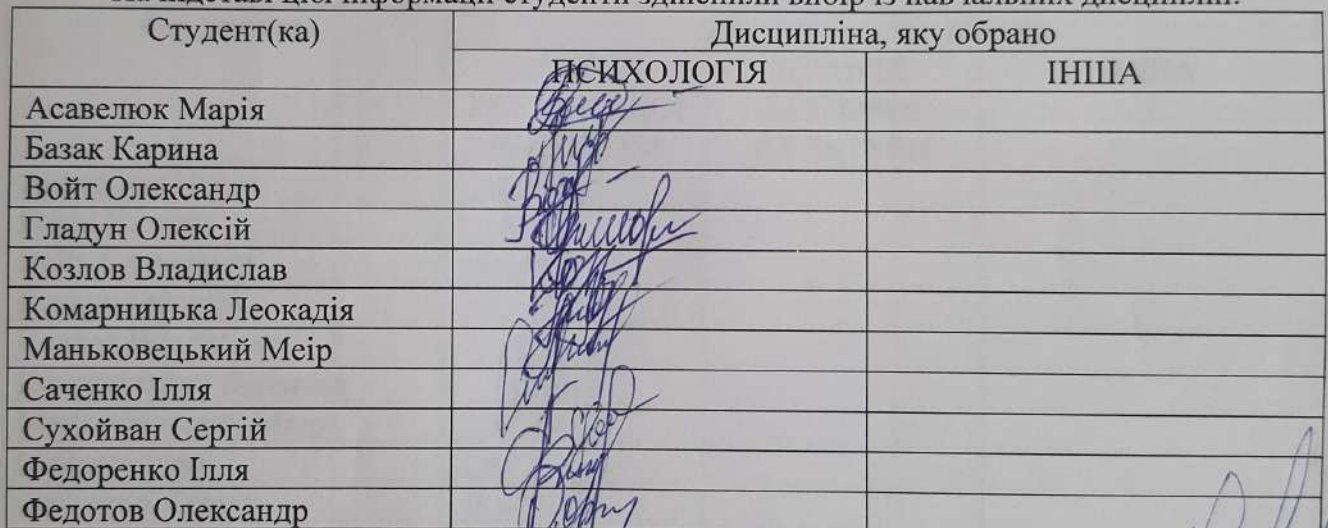 На підставі цієї інформації студенти здійснили вибір із навчальних дисциплін:
Студент(ка) Дисципліна, яку обрано
ПСИХОЛОГІЯ ІНША
Асавелюк Марія
Базак Карина
Войт Олександр
Гладун Олексій
Козлов Владислав
Комарницька Леокадія
Маньковецький Меір
Саченко Ілля
Сухойван Сергій
Федоренко Ілля
Федотов Олександр